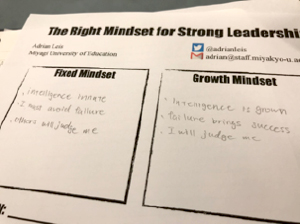 The Right Mindset for Strong Leadershi
Adrian Leis
Miyagi University of Education
@adrianleis
adrian@staff.miyakyo-u.a
Fixed Mindset
Growth Mindset
• intelligence innate
• I must avoid failure
• others will judge me
• Intelligence is grown
• failure brings success
• I will judge me